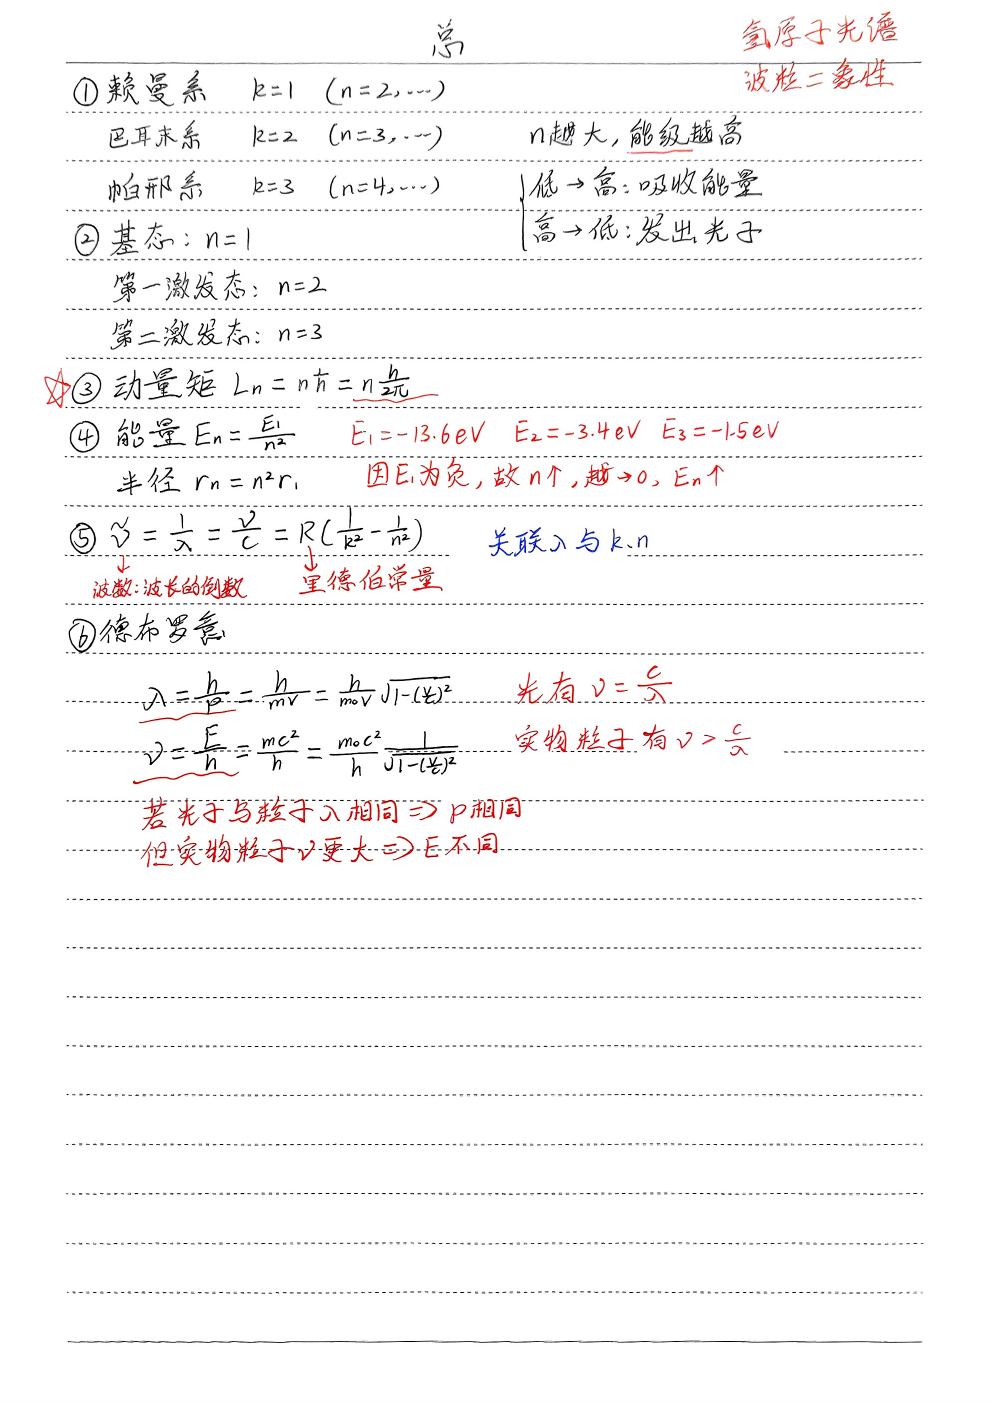 总
氢原子光谱
波粒二象性
①赖曼系 k=1 (n=2,…)
巴耳末系 k=2 (n=3,…) n越大,能级越高
帕邢系 k=3 (n=4,…) 低→高:吸收能量
②基态:n=1 高→低:发出光子
第一激发态:n=2
第二激发态:n=3
☆③动量矩 Ln=nħ=n h/2π
④能量 En=E₁/n² E₁=-13.6eV E₂=-3.4eV E₃=-1.5eV
半径 rn=n²r₁ 因E₁为负,故n↑,越→0,En↑
⑤ ṽ=1/λ=ν/c=R(1/k²-1/n²) 关联λ与k、n
↓ ↓
波数:波长的倒数 里德伯常量
⑥德布罗意
λ=h/p=h/mv=h/m₀v √1-(v/c)² 光有ν=c/λ
ν=E/h=mc²/h=m₀c²/h 1/√1-(v/c)² 实物粒子有ν>c/λ
若光子与粒子λ相同⇒p相同
但实物粒子ν更大⇒E不同